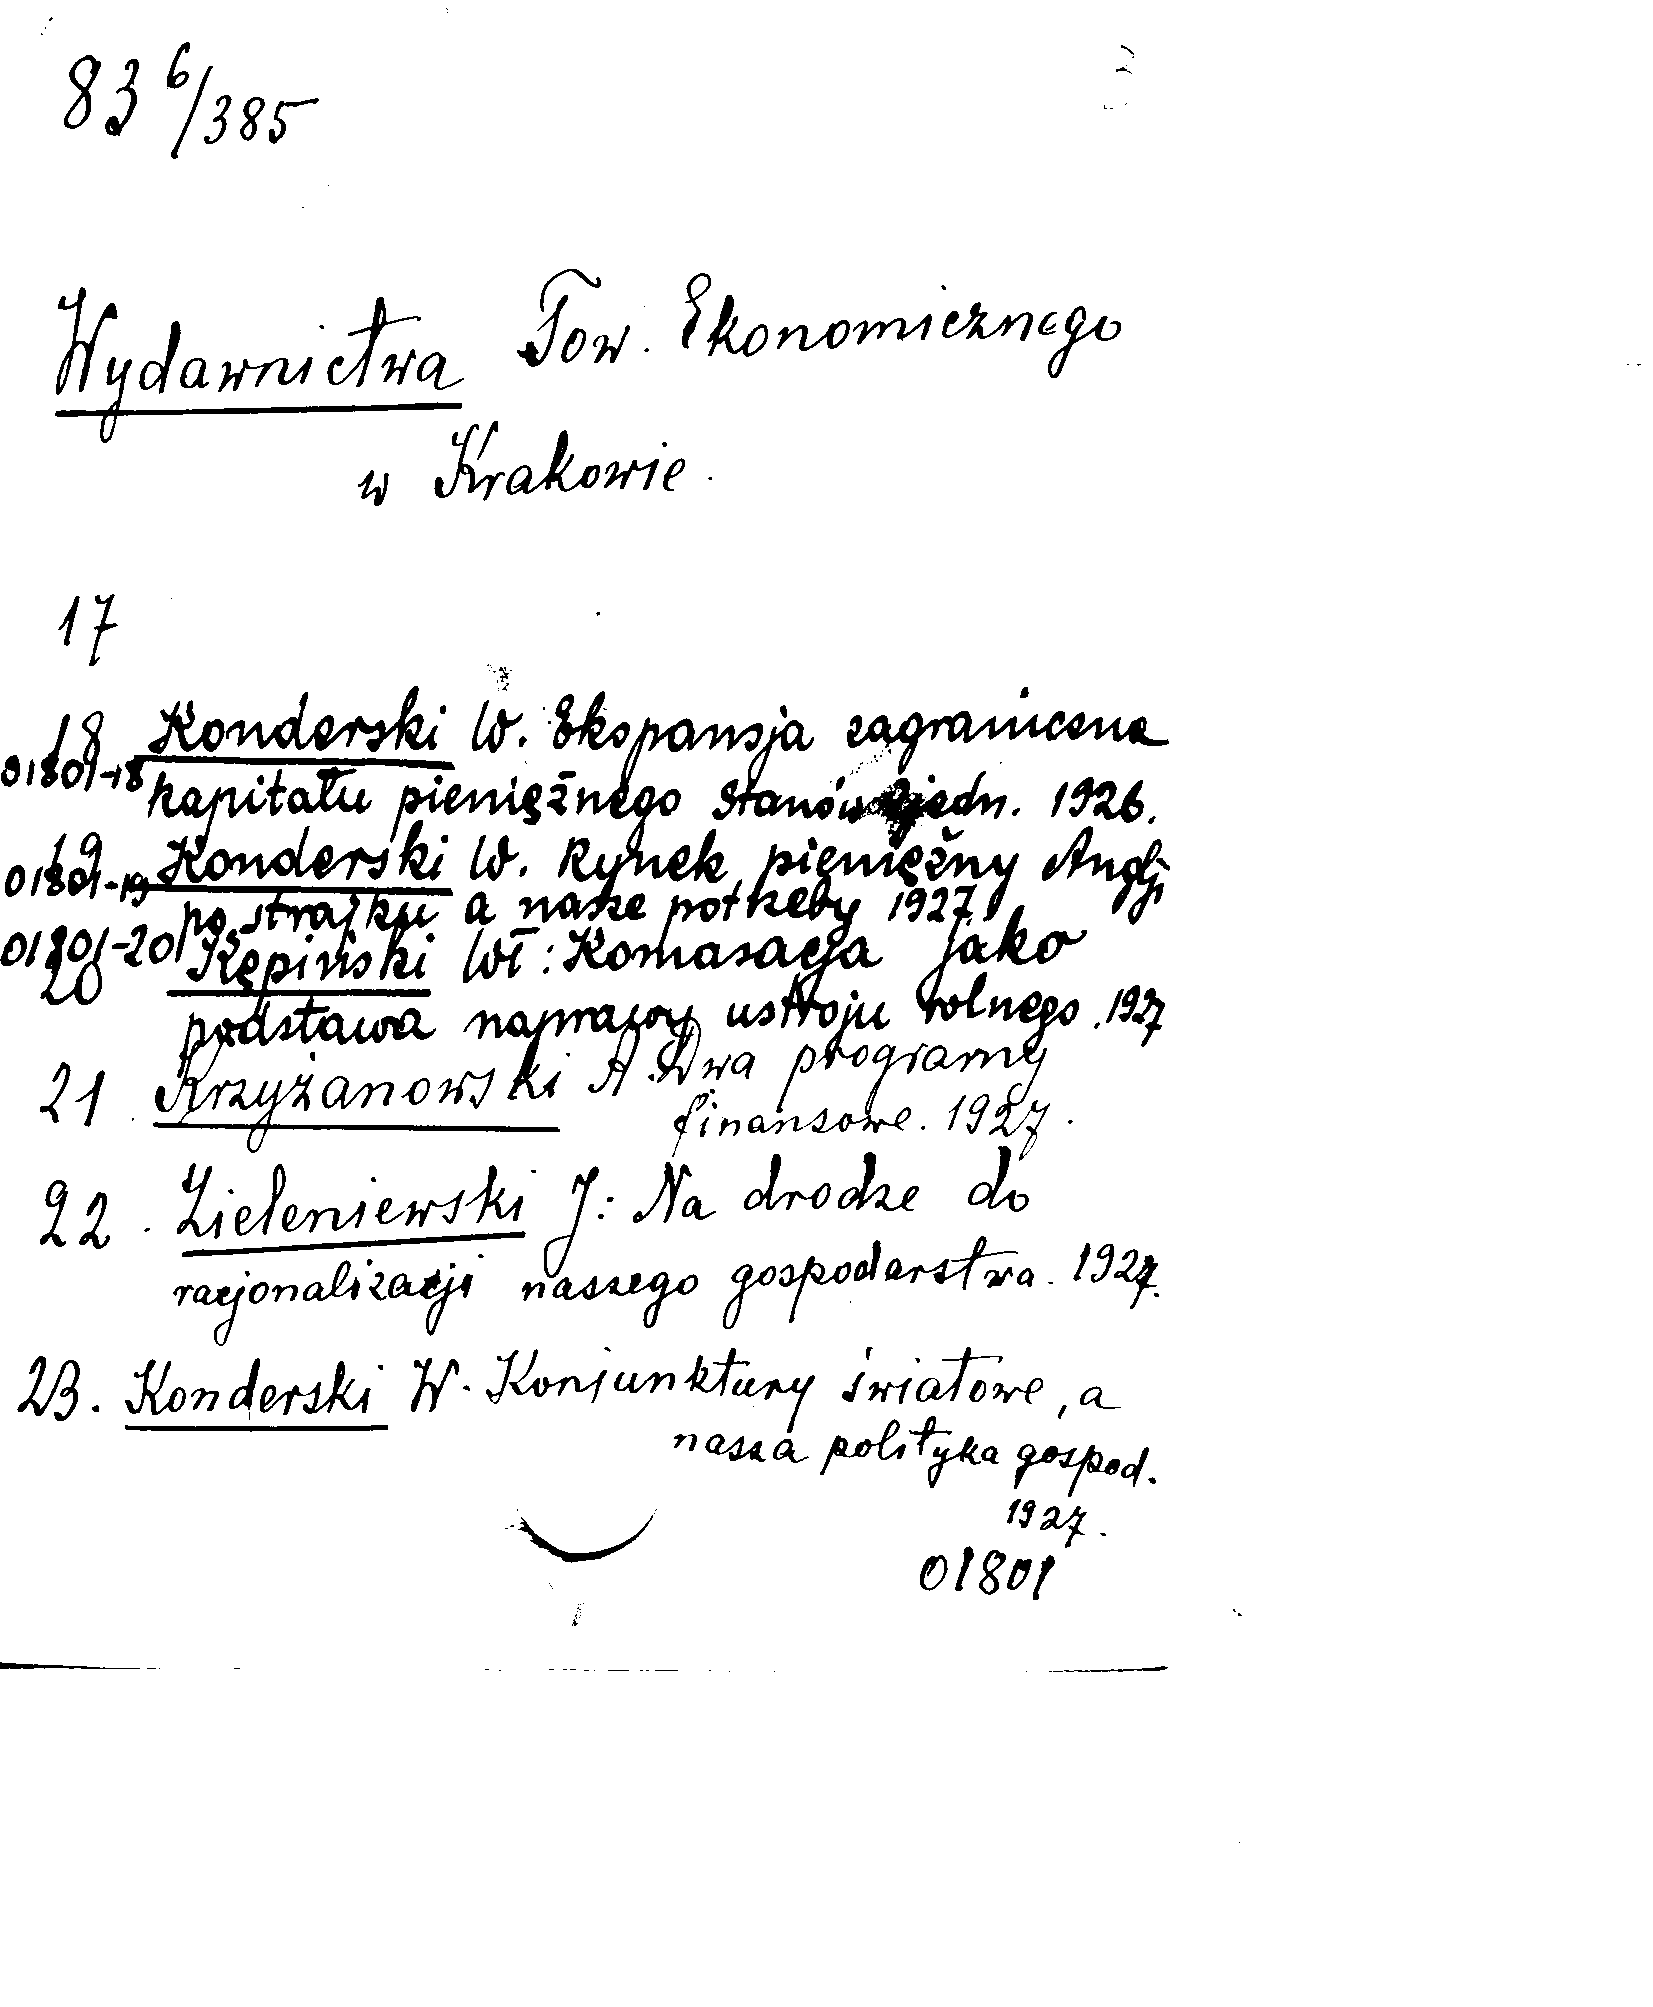 83 6/385
Wydawnictwa Tow. Ekonomicznego
w Krakowie.
17
18 Konderski W. Ekspansja zagraniczna
01801-18 kapitału pieniężnego Stanów Zjedn. 1926.
19 Konderski W. Rynek pieniężny Anglji
01801-19 po strajku a nasze potrzeby 1927.
01801-20 Kępiński Wł: Komasacja jako
20 podstawa naprawy ustroju rolnego. 1927
21 Krzyżanowski A. Dwa programy
finansowe. 1927.
22. Zieleniewski J: Na drodze do
racjonalizacji naszego gospodarstwa. 1927.
23. Konderski W. Konjunktury światowe, a
nasza polityka gospod.
1927.
01801